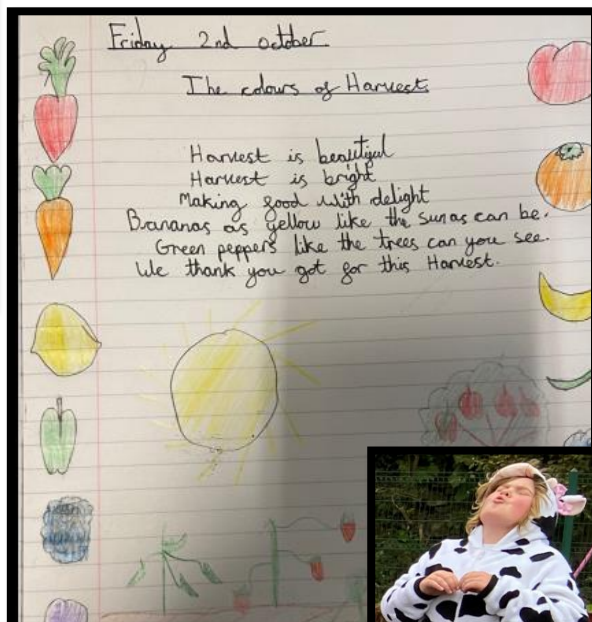 Friday 2nd october
The colours of Harvest.
Harvest is beautiful
Harvest is bright
Making good with delight
Bananas as yellow like the sun as can be.
Green peppers like the trees can you see.
We thank you got for this Harvest.